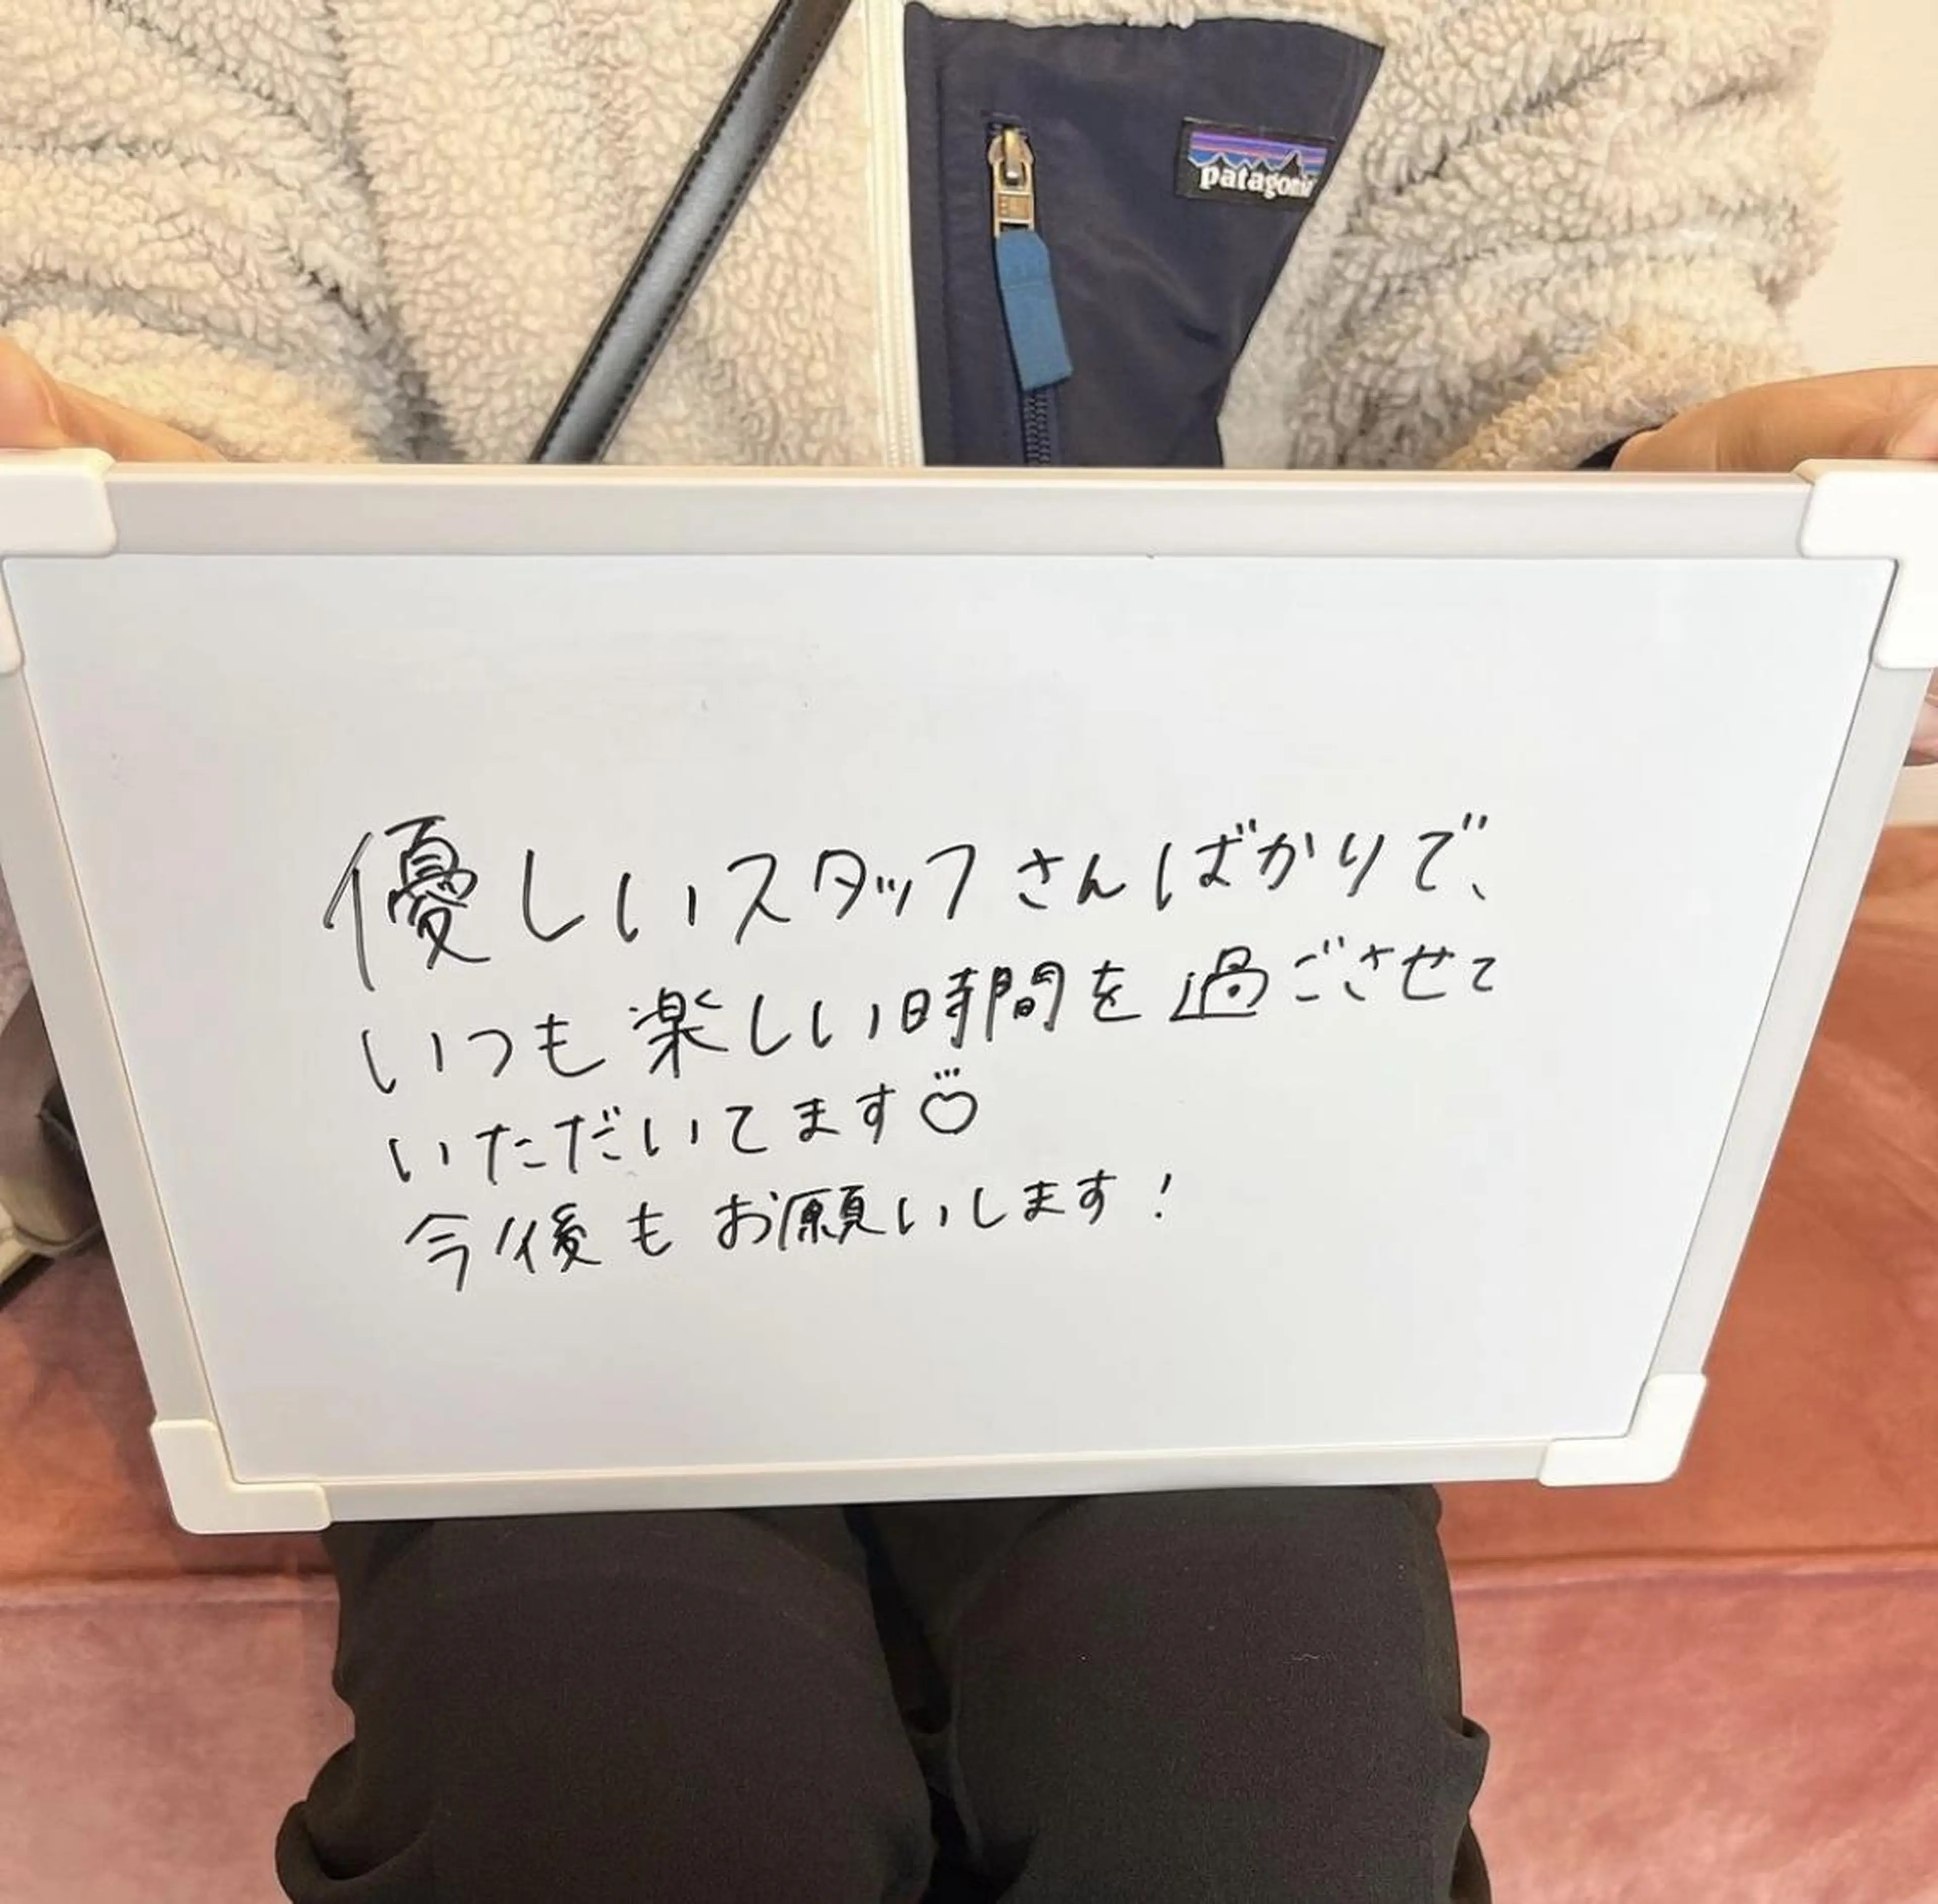 patagonia
優しいスタッフさんばかりで、
いつも楽しい時間を過ごさせて
いただいてます♡
今後もお願いします!